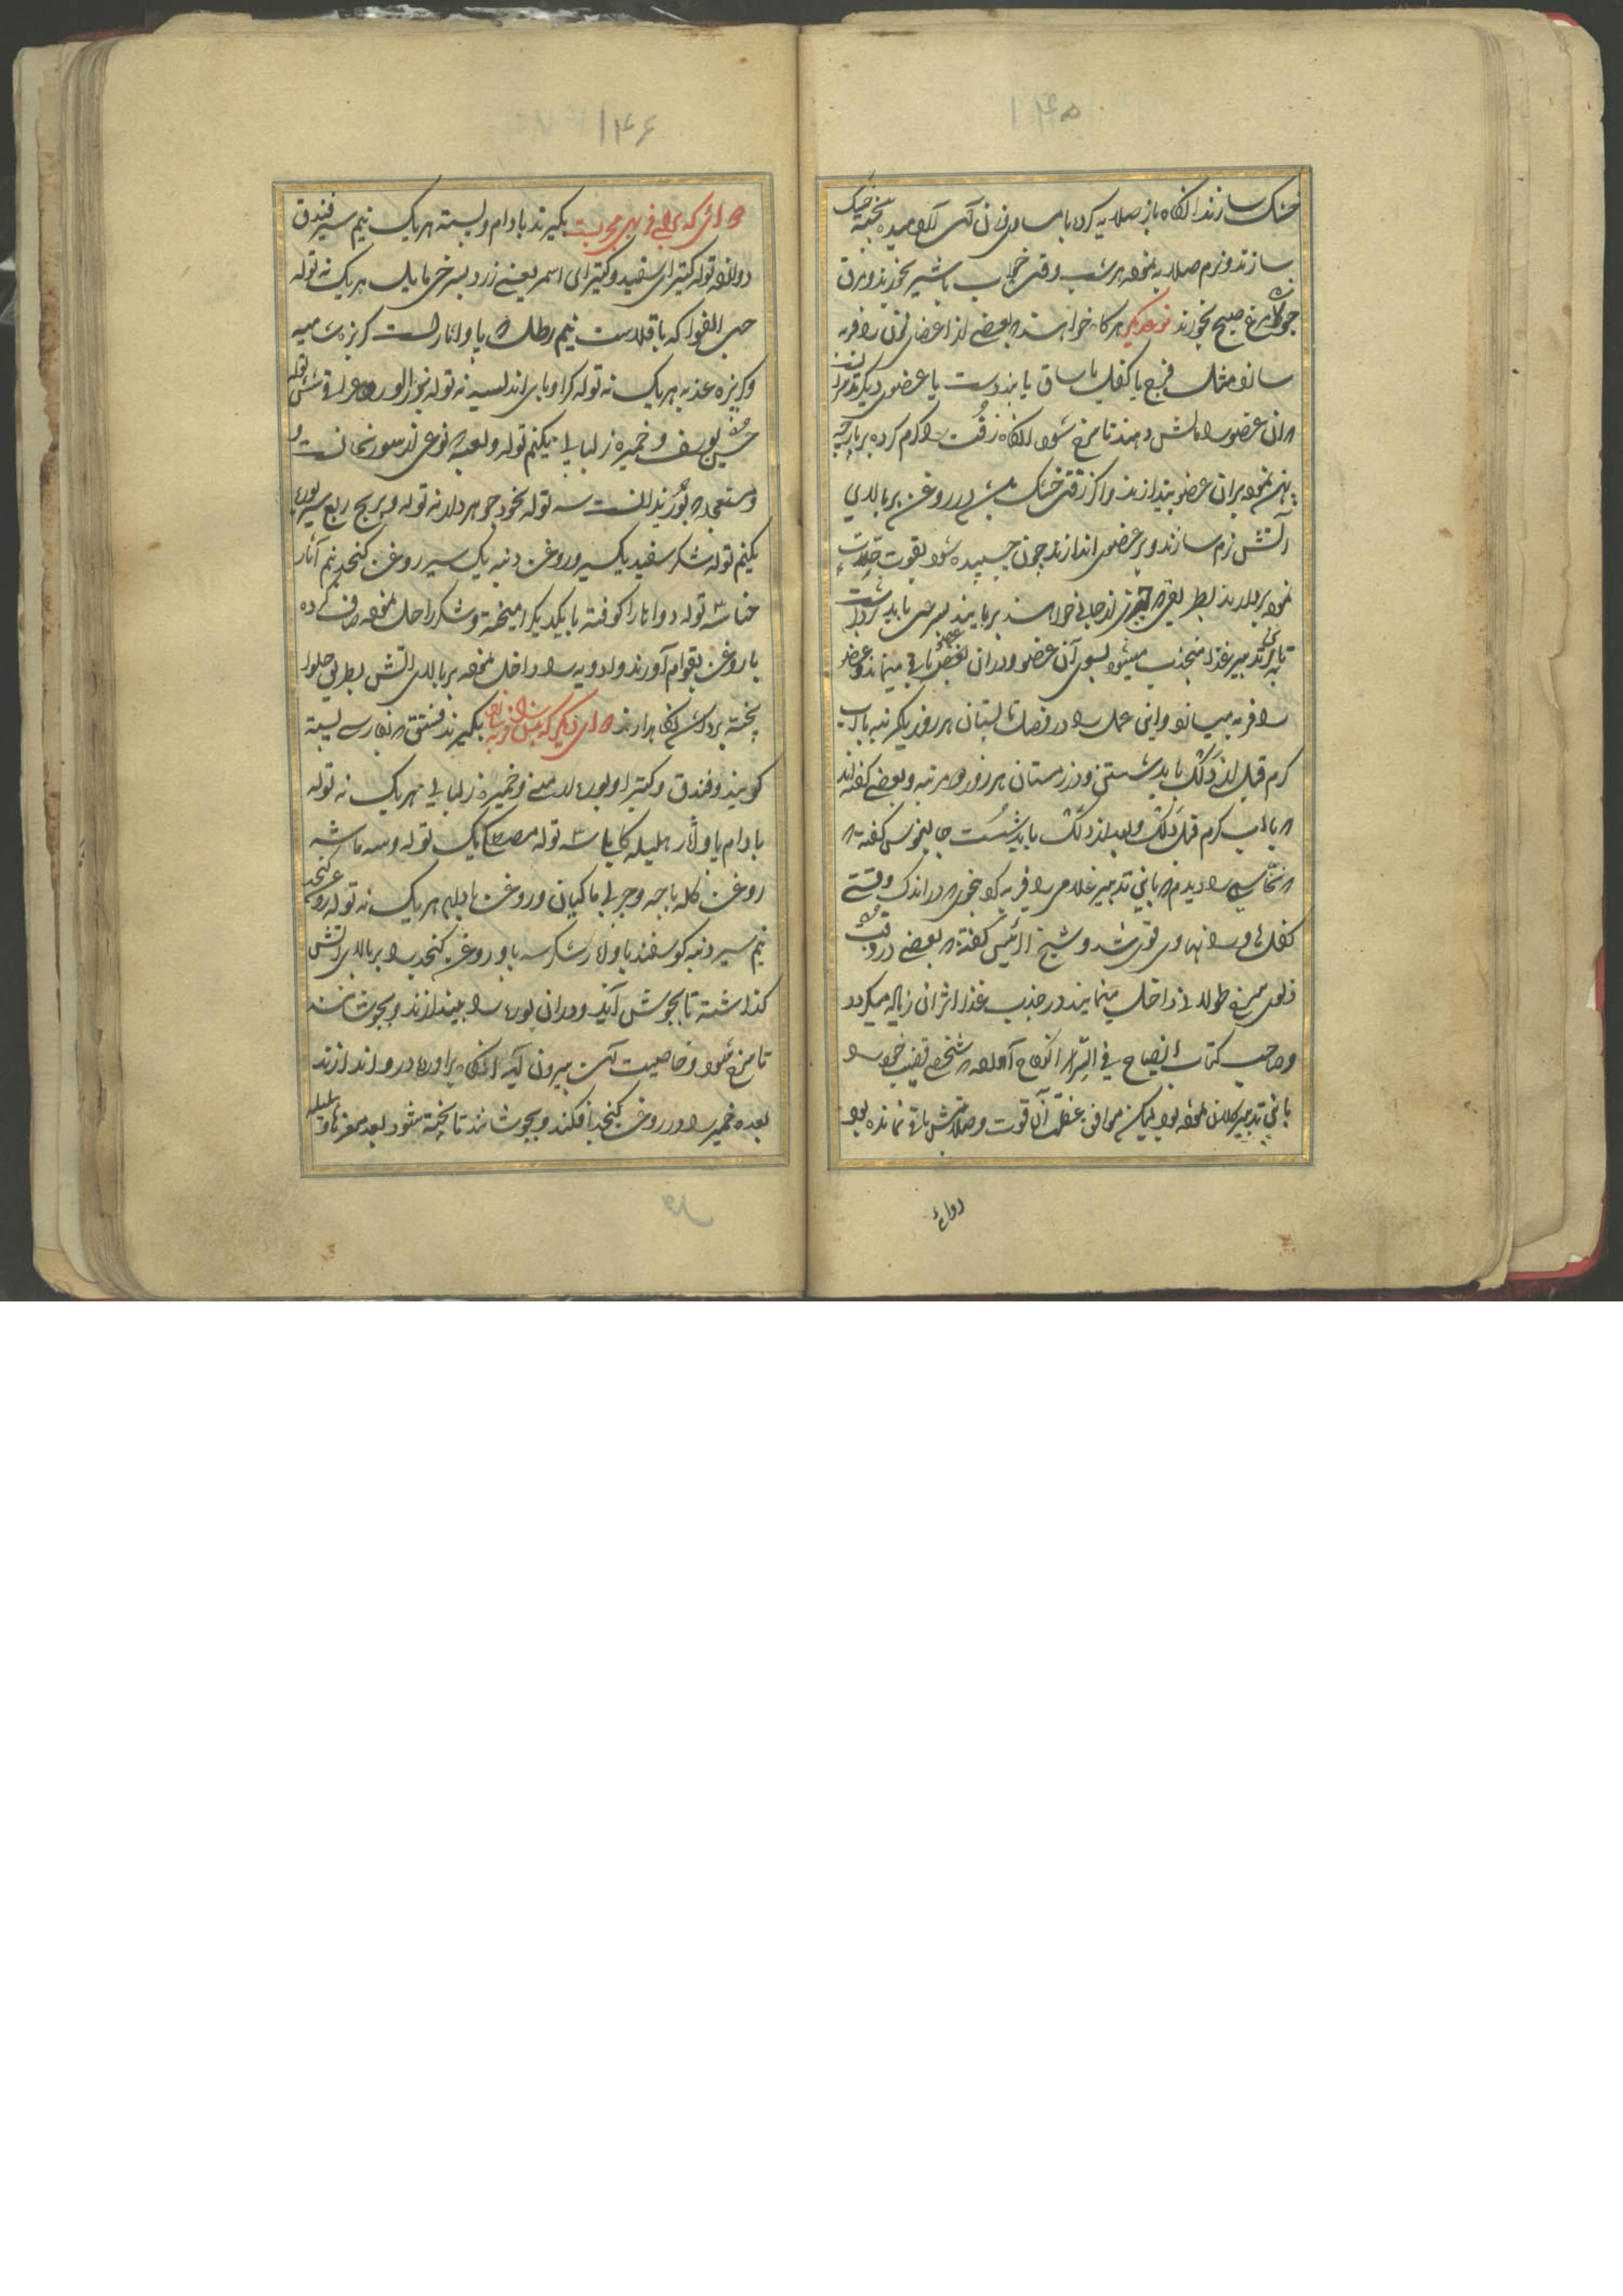 ۱۴۵
خشک سازند انگاه باز صلایه کرده با مساوی وزن آن آرد میده پخته خشک
سازند و نرم صلایه نموده هر شب وقت خواب با شیر بخورند و مرق
جوزه مرغ صبح بخورند نوع دیگر هرگاه خواهند که بعضی از اعضای زن را فربه
سازند مثل فرج یا کفل یا ساق یا بند دست یا عضوی دیگر
که آن عضو را مالش دهند تا سرخ شود انگاه زفت را گرم کرده بر پارچه
پهن نموده بران عضو بیندازند و اگر زفت خشک باشد در روغن بر بالای
آتش نرم سازند و بر عضو اندازند چون چسپیده شود بقوت
نموده بردارند بطریقی که چیزی از جائی خواهند بربایند بسرعت باید برداشت
تا باین تدبیر غذا منجذب میشود بسوی آن عضو و دران عضو باقی میماند و عضو
را فربه میسازد و این عمل را در فصل تابستان هر روز یکمرتبه بآب
گرم قبل از دلک باید شستن و در زمستان هر روز دو مرتبه و بعضی گفته‌اند
که بآب گرم قبل دلک و بعد از دلک باید شست جالینوس گفته که
که نخاسی را دیدم که باین تدبیر غلامی را فربه کرد بنحوی که در اندک وقتی
کفلهای و رانهای وی قوی شد و شیخ الرئیس گفته که بعضی در وقت
زفت طولانی داخل مینمایند در جذب غذا اثر آن زیاده میگردد
و صاحب کتاب ایضاح فی اسرار النکاح آورده که شخصی قضیب خود را
باین تدبیر کلان نموده بود لیکن موافق عظم آن قوت و صلابتش باقی نمانده بود
دوائ
۱۴۶
دوای که برای فربهی مجربست بگیرند بادام و پسته هر یک نیم سیر فندق
دوازده توله کتیرای سفید و کتیرای اسمر یعنی زرد بسرخی مایل هر یک نه توله
حب الفوا که باقلاست نیم رطل که پاو اثار است کزبره شامیه
و کزبره عذبه هر یک نه توله کراویای اندلسیه نه توله شش توله
حسن یوسف و خمیره زلبا یکنیم توله و لعبه که نوعی از سورنجانست و
و مستعجله که بوزیدانست سه توله نخود جوهر دار نه توله و برنج ربع سیر بوره
یکنیم توله شکر سفید یکسیر و روغن دنبه یک سیر روغن کنجد نیم آثار
حنا سه توله دواها را کوفته با یکدیگر امیخته و شکر را حل نموده صاف کرده
با روغن بقوام آورند و ادویه را داخل نموده بر بالای آتش بطریق حلوا
پخته بردارند نگاه دارند دوای دیگر که بدن را فربه سازد بگیرند فستق که بفارسی پسته
گویند و فندق و کتیرا و بوره ارمنی و خمیره زلبا هر یک نه توله
بادام پاو آثار هلیله کابلی سه توله مصطکی یک توله و سه ماشه
روغن کله پاچه و چربی ماکیان و روغن هر یک نه توله روغن کنجد
نیم سیر دنبه گوسفند پاو آثار شکر سه پاو روغن کنجد را بر بالای آتش
گذاشته تا بجوش آید و دران بوره را بیندازند و بجوشانند
تا سرخ شود و خاصیت آن بیرون آید انگاه بر آورده دور اندازند
بعده خمیره را در روغن کنجد افکنند و بجوشانند تا پخته شود بعد مغزها و هلیله